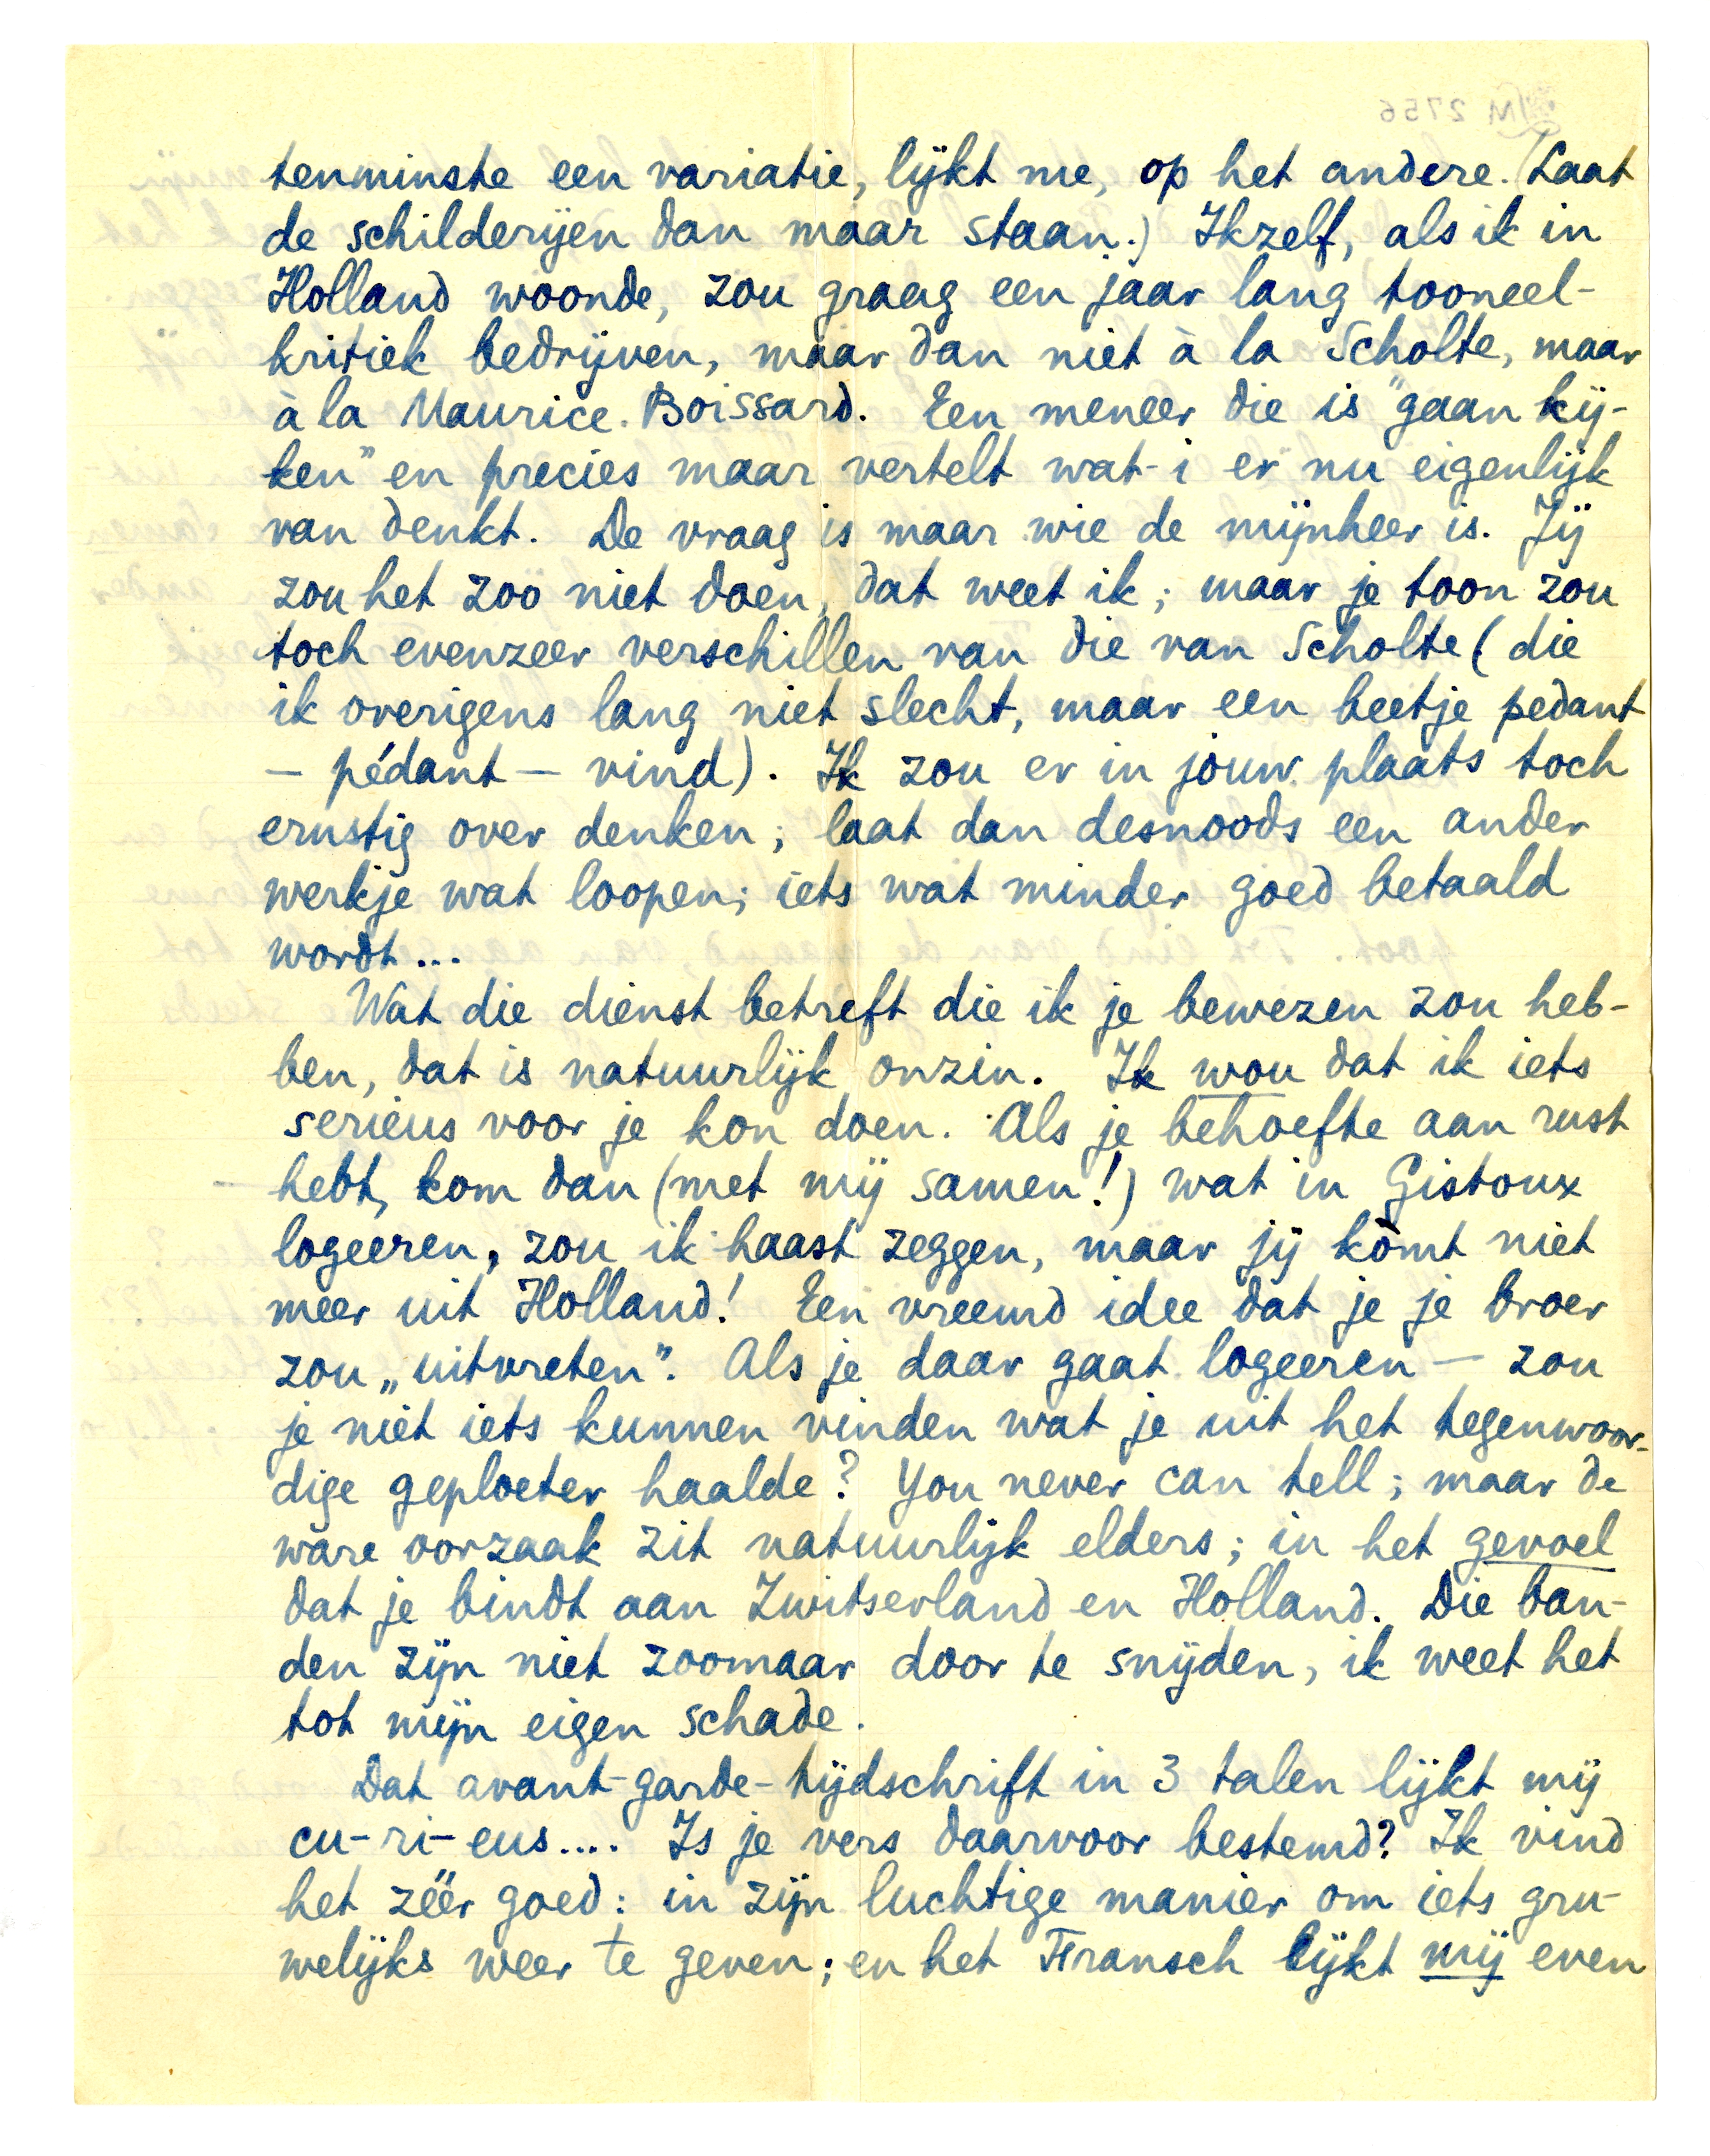 tenminste een variatie, lijkt me, op het andere. (Laat
de schilderijen dan maar staan.) Ikzelf, als ik in
Holland woonde, zou graag een jaar lang tooneel-
kritiek bedrijven, maar dan niet à la Scholte, maar
à la Maurice Boissard. Een meneer die is "gaan kij-
ken" en precies maar vertelt wat-i er nu eigenlijk
van denkt. De vraag is maar wie de mijnheer is. Jij
zou het zoo niet doen, dat weet ik; maar je toon zou
toch evenzeer verschillen van die van Scholte (die
ik overigens lang niet slecht, maar een beetje pedant
— pédant — vind). Ik zou er in jouw plaats toch
ernstig over denken; laat dan desnoods een ander
werkje wat loopen; iets wat minder goed betaald
wordt...
Wat die dienst betreft die ik je bewezen zou heb-
ben, dat is natuurlijk onzin. Ik wou dat ik iets
serieus voor je kon doen. Als je behoefte aan rust
hebt, kom dan (met mij samen!) wat in Gistoux
logeeren, zou ik haast zeggen, maar jij kòmt niet
meer uit Holland! Een vreemd idee dat je je broer
zou „uitvreten". Als je daar gaat logeeren — zou
je niet iets kunnen vinden wat je uit het tegenwoor-
dige geploeter haalde? You never can tell; maar de
ware oorzaak zit natuurlijk elders; in het gevoel
dat je bindt aan Zwitserland en Holland. Die ban-
den zijn niet zoomaar door te snijden, ik weet het
tot mijn eigen schade.
Dat avant-garde-tijdschrift in 3 talen lijkt mij
cu-ri-eus.... Is je vers daarvoor bestemd? Ik vind
het zéér goed: in zijn luchtige manier om iets gru-
welijks weer te geven; en het Fransch lijkt mij even